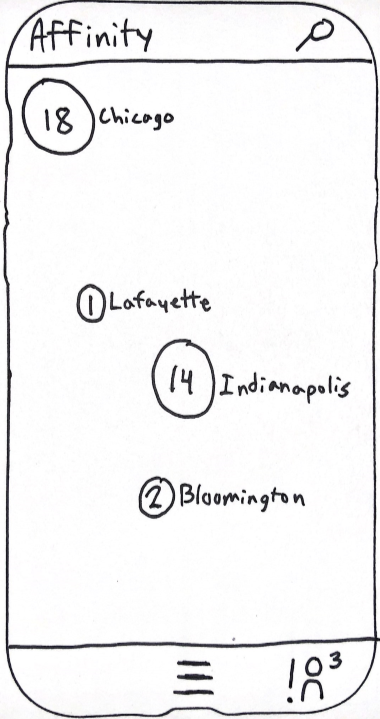 Affinity
18 Chicago
1 Lafayette
14 Indianapolis
2 Bloomington
! 3